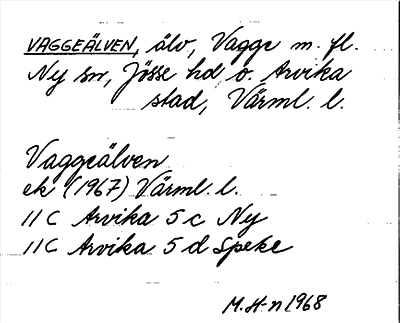 VAGGEÄLVEN, älv, Vagge m. fl.
Ny sn, Jösse hd o. Arvika
stad, Värml. l.
Vaggeälven
ek (1967) Värml. l.
11 C Arvika 5 c Ny
11 C Arvika 5 d Speke
M. H-n 1968